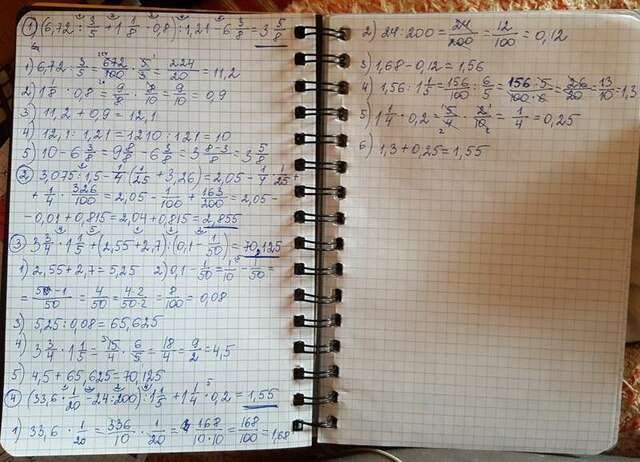 1) (6,72 : 3/5 + 1 1/8 · 0,8) : 1,21 - 6 3/8 = 3 5/8
1) 6,72 : 3/5 = 672/100 · 5/3 = 224/20 = 11,2
2) 1 1/8 · 0,8 = 9/8 · 8/10 = 9/10 = 0,9
3) 11,2 + 0,9 = 12,1
4) 12,1 : 1,21 = 1210 : 121 = 10
5) 10 - 6 3/8 = 9 8/8 - 6 3/8 = 3 8-3/8 = 3 5/8
2) 3,075 : 1,5 - 1/4 (1/25 + 3,26) = 2,05 - 1/4 · 1/25 +
+ 1/4 · 326/100 = 2,05 - 1/100 + 163/200 = 2,05 -
- 0,01 + 0,815 = 2,04 + 0,815 = 2,855
3) 3 3/4 · 1 1/5 + (2,55 + 2,7) : (0,1 - 1/50) = 70,125
1) 2,55 + 2,7 = 5,25 2) 0,1 - 1/50 = 1/10 - 1/50 =
= 5-1/50 = 4/50 = 4·2/50·2 = 8/100 = 0,08
3) 5,25 : 0,08 = 65,625
4) 3 3/4 · 1 1/5 = 15/4 · 6/5 = 18/4 = 9/2 = 4,5
5) 4,5 + 65,625 = 70,125
4) (33,6 · 1/20 - 24 : 200) : 1 1/5 + 1 1/4 · 0,2 = 1,55
1) 33,6 · 1/20 = 336/10 · 1/20 = 168/10·10 = 168/100 = 1,68
2) 24 : 200 = 24/200 = 12/100 = 0,12
3) 1,68 - 0,12 = 1,56
4) 1,56 : 1 1/5 = 156/100 : 6/5 = 156·5/100·6 = 26/20 = 13/10 = 1,3
5) 1 1/4 · 0,2 = 5/4 · 2/10 = 1/4 = 0,25
6) 1,3 + 0,25 = 1,55